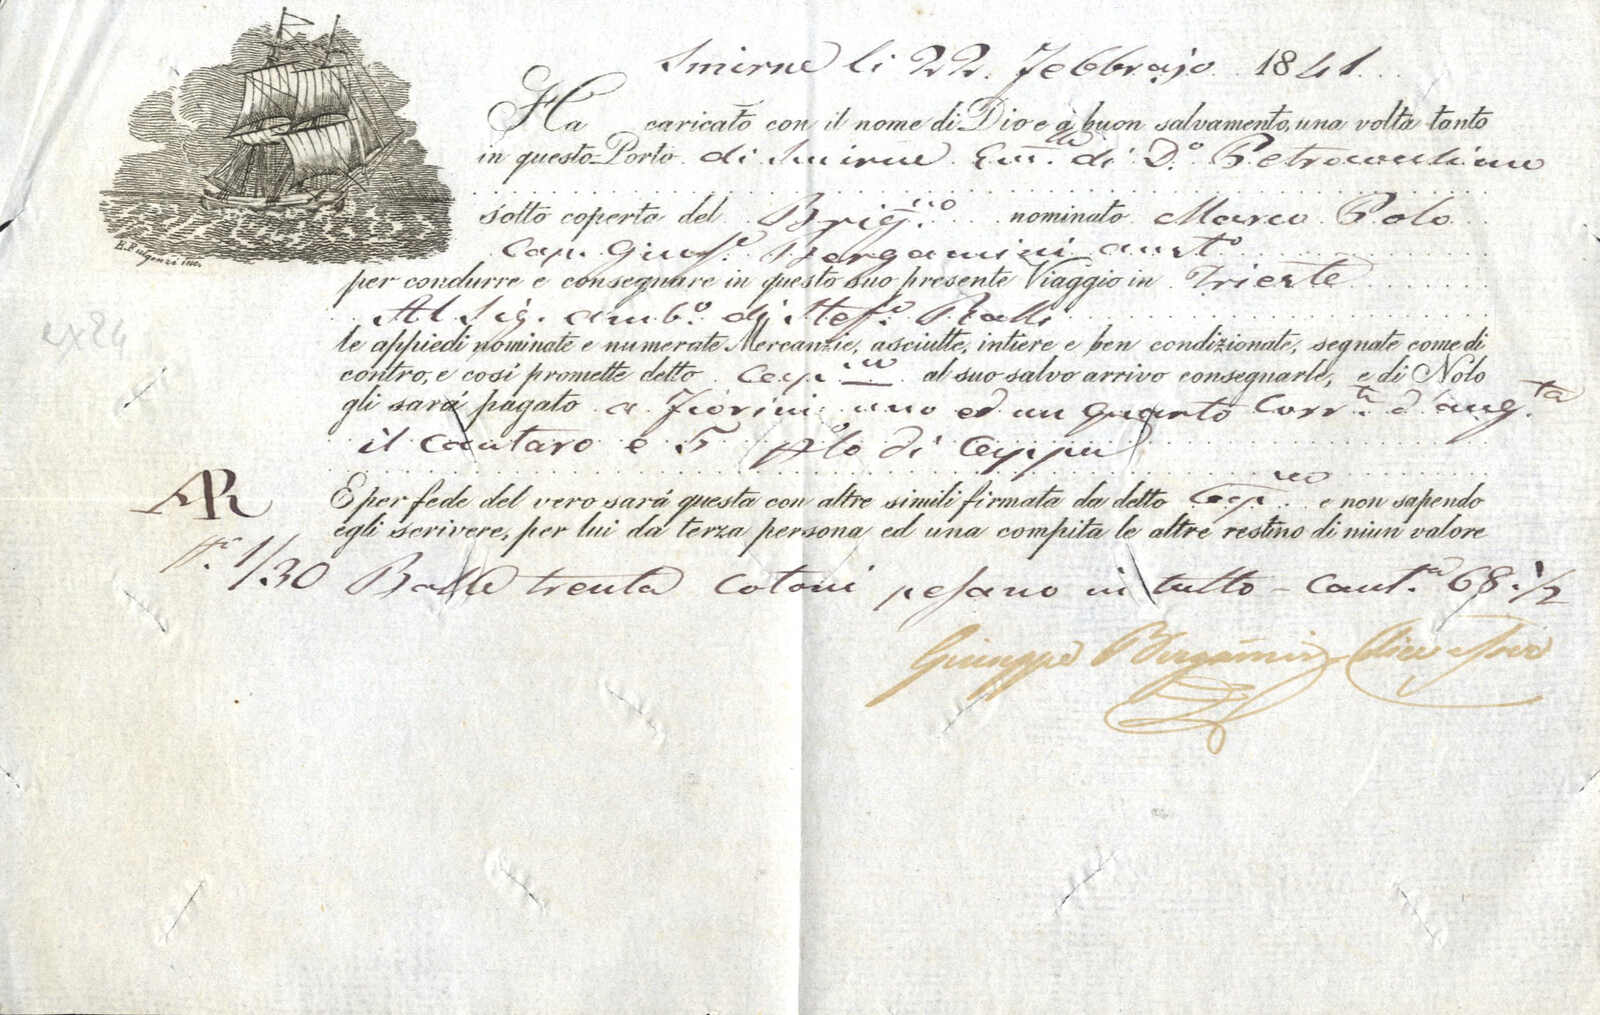 Smirne li 22 Febbrajo 1841
Ha caricato con il nome di Dio e a buon salvamento, una volta tanto
in questo Porto di Smirne Em.le di D.o Petrococchino
sotto coperta del Brig.no nominato Marco Polo
Cap. Gius.e Bergamini aust.o
per condurre e consegnare in questo suo presente Viaggio in Trieste
Al Sig. Amb.o di Stef.o Ralli
le appiedi nominate e numerate Mercanzie, asciutte, intiere e ben condizionate, segnate come di
contro, e così promette detto Cap.no al suo salvo arrivo consegnarle, e di Nolo
gli sará pagato a Fiorini uno ed un quarto Corr.ti d'aug.ta
il Cantaro e 5 p%lo di Cappa
AR
E per fede del vero sará questa con altre simili firmata da detto Cap.no e non sapendo
egli scrivere, per lui da terza persona ed una compita le altre restino di niun valore
N.o 1/30 Balle trenta Cotoni pesano in tutto - Cant.ra 68.1/2
Giuseppe Bergamin
ex24